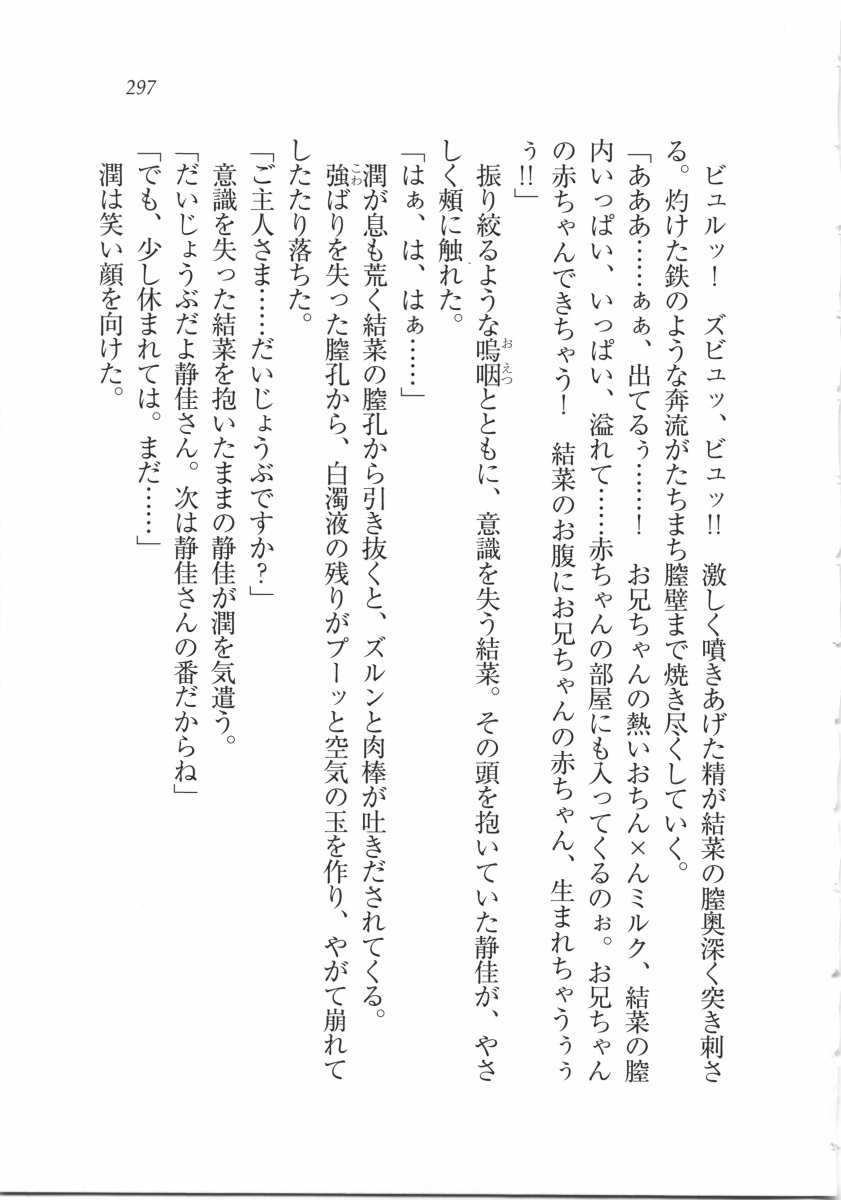 297
ビュルッ！　ズビュッ、ビュッ!!　激しく噴きあげた精が結菜の膣奥深く突き刺さ
る。灼けた鉄のような奔流がたちまち膣壁まで焼き尽くしていく。
「あああ……ぁぁ、出てるぅ……！　お兄ちゃんの熱いおちん×んミルク、結菜の膣
内いっぱい、いっぱい、溢れて……赤ちゃんの部屋にも入ってくるのぉ。お兄ちゃん
の赤ちゃんできちゃう！　結菜のお腹にお兄ちゃんの赤ちゃん、生まれちゃうぅぅ
ぅ!!」
振り絞るような嗚咽とともに、意識を失う結菜。その頭を抱いていた静佳が、やさ
しく頰に触れた。
「はぁ、は、はぁ……」
潤が息も荒く結菜の膣孔から引き抜くと、ズルンと肉棒が吐きだされてくる。
強ばりを失った膣孔から、白濁液の残りがプーッと空気の玉を作り、やがて崩れて
したたり落ちた。
「ご主人さま……だいじょうぶですか？」
意識を失った結菜を抱いたままの静佳が潤を気遣う。
「だいじょうぶだよ静佳さん。次は静佳さんの番だからね」
「でも、少し休まれては。まだ……」
潤は笑い顔を向けた。